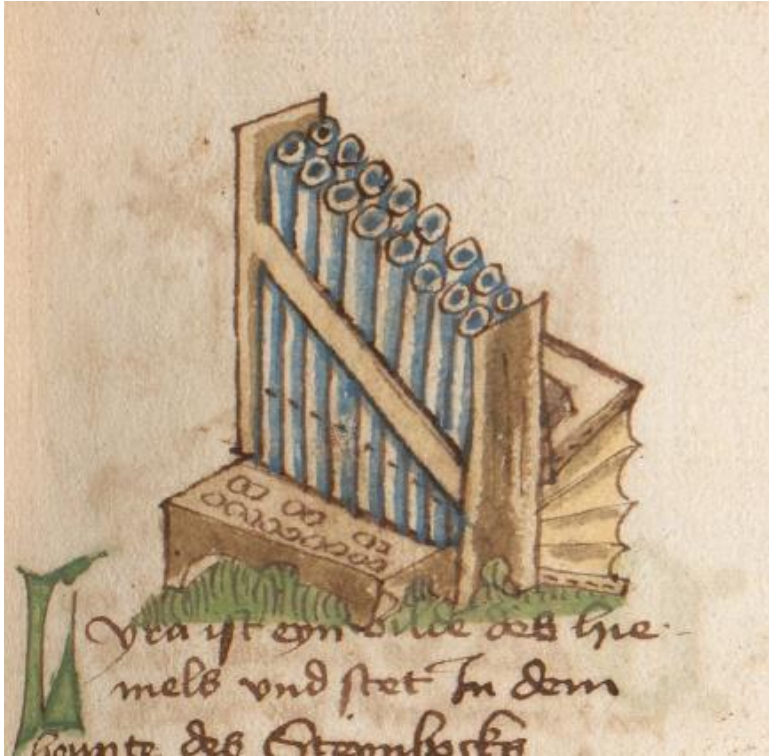 Lyra ist eyn bilde des hie-
mels vnd stet In dem
houpte des Steynbocks